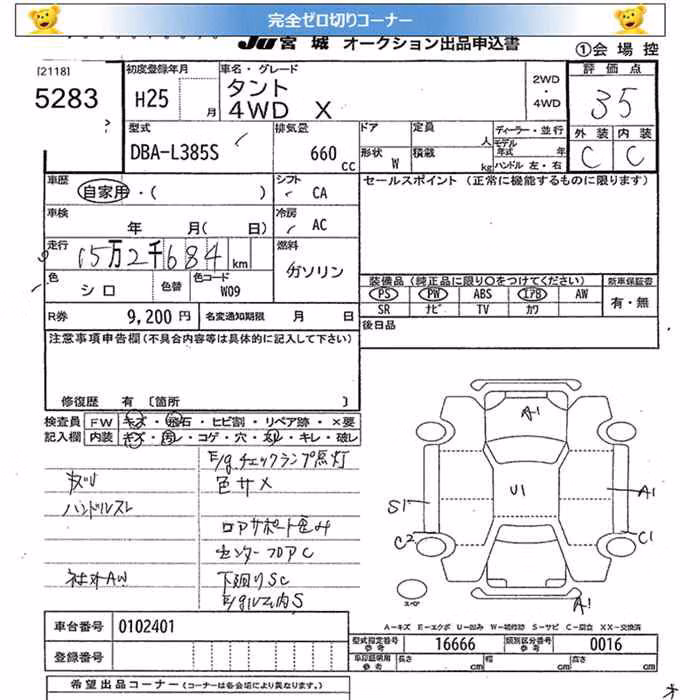 完全ゼロ切りコーナー
JU 宮城 オークション出品申込書
①会場控
[2118]
5283
初度登録年月
H25 月
車名・グレード
タント
4WD X
2WD
・
4WD
評価点
3.5
外装 内装
C C
型式
DBA-L385S
排気量
660 CC
ドア 定員 人
形状 W 積載 kg
ディーラー・並行
モデル年式 年
ハンドル 左・右
車歴
自家用・( )
シフト
CA
セールスポイント (正常に機能するものに限ります)
車検
年 月( 日)
冷房
AC
走行
15万2千684 km
燃料
ガソリン
色
シロ
色替
色コード
W09
装備品(純正品に限り○をつけてください)
新車保証書
PS PW ABS エアB AW
有・無
SR ナビ TV カワ
R券 9,200 円
名変通知期限 月 日
後日品
注意事項申告欄(不具合内容等は具体的に記入して下さい)
修復歴 有 〔箇所 〕
検査員 FW キズ・飛石・ヒビ割・リペア跡・×要
記入欄 内装 キズ・汚レ・コゲ・穴・スレ・キレ・破レ
E/gチェックランプ点灯
色サメ
ハンドルスレ
ロアサポート歪み
センターフロアC
社外AW
下廻りSC
E/gルーム内S
A1
U1
S1
A1
C2
C1
スペア
A1
A―キズ E―エクボ U―凹み W―補修跡 S―サビ C―腐食 XX―交換済
車台番号 0102401
登録番号
型式指定番号 参考 16666
類別区分番号 参考 0016
車庫証明用 参考
長さ cm
幅 cm
高さ cm
希望出品コーナー (コーナーは各会場により異なります。)